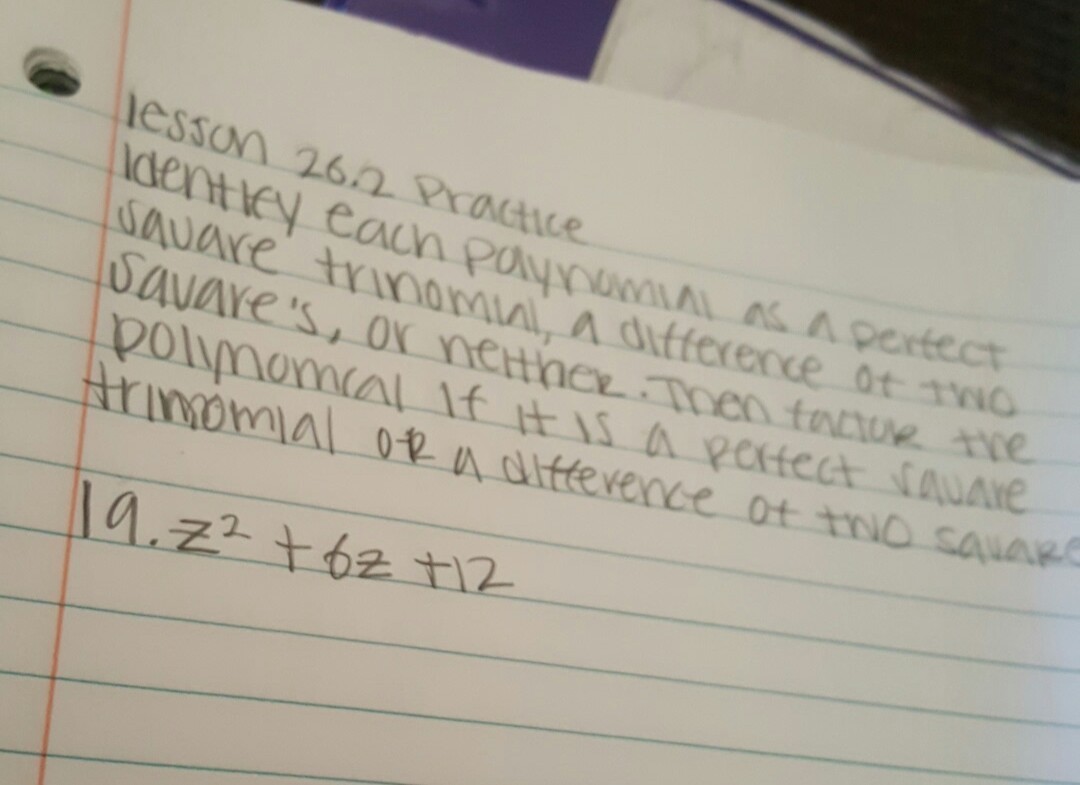 lesson 26.2 Practice
Identify each paynomial as a perfect
square trinomial, a difference of two
square's, or neither. Then factor the
polimomcal if it is a perfect square
trimomial or a difference of two square
19. z² + 6z + 12